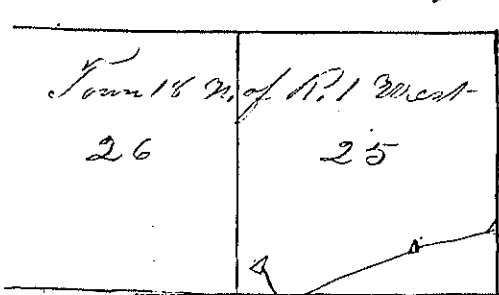 Town 18 N. of R. 1 West
26 25